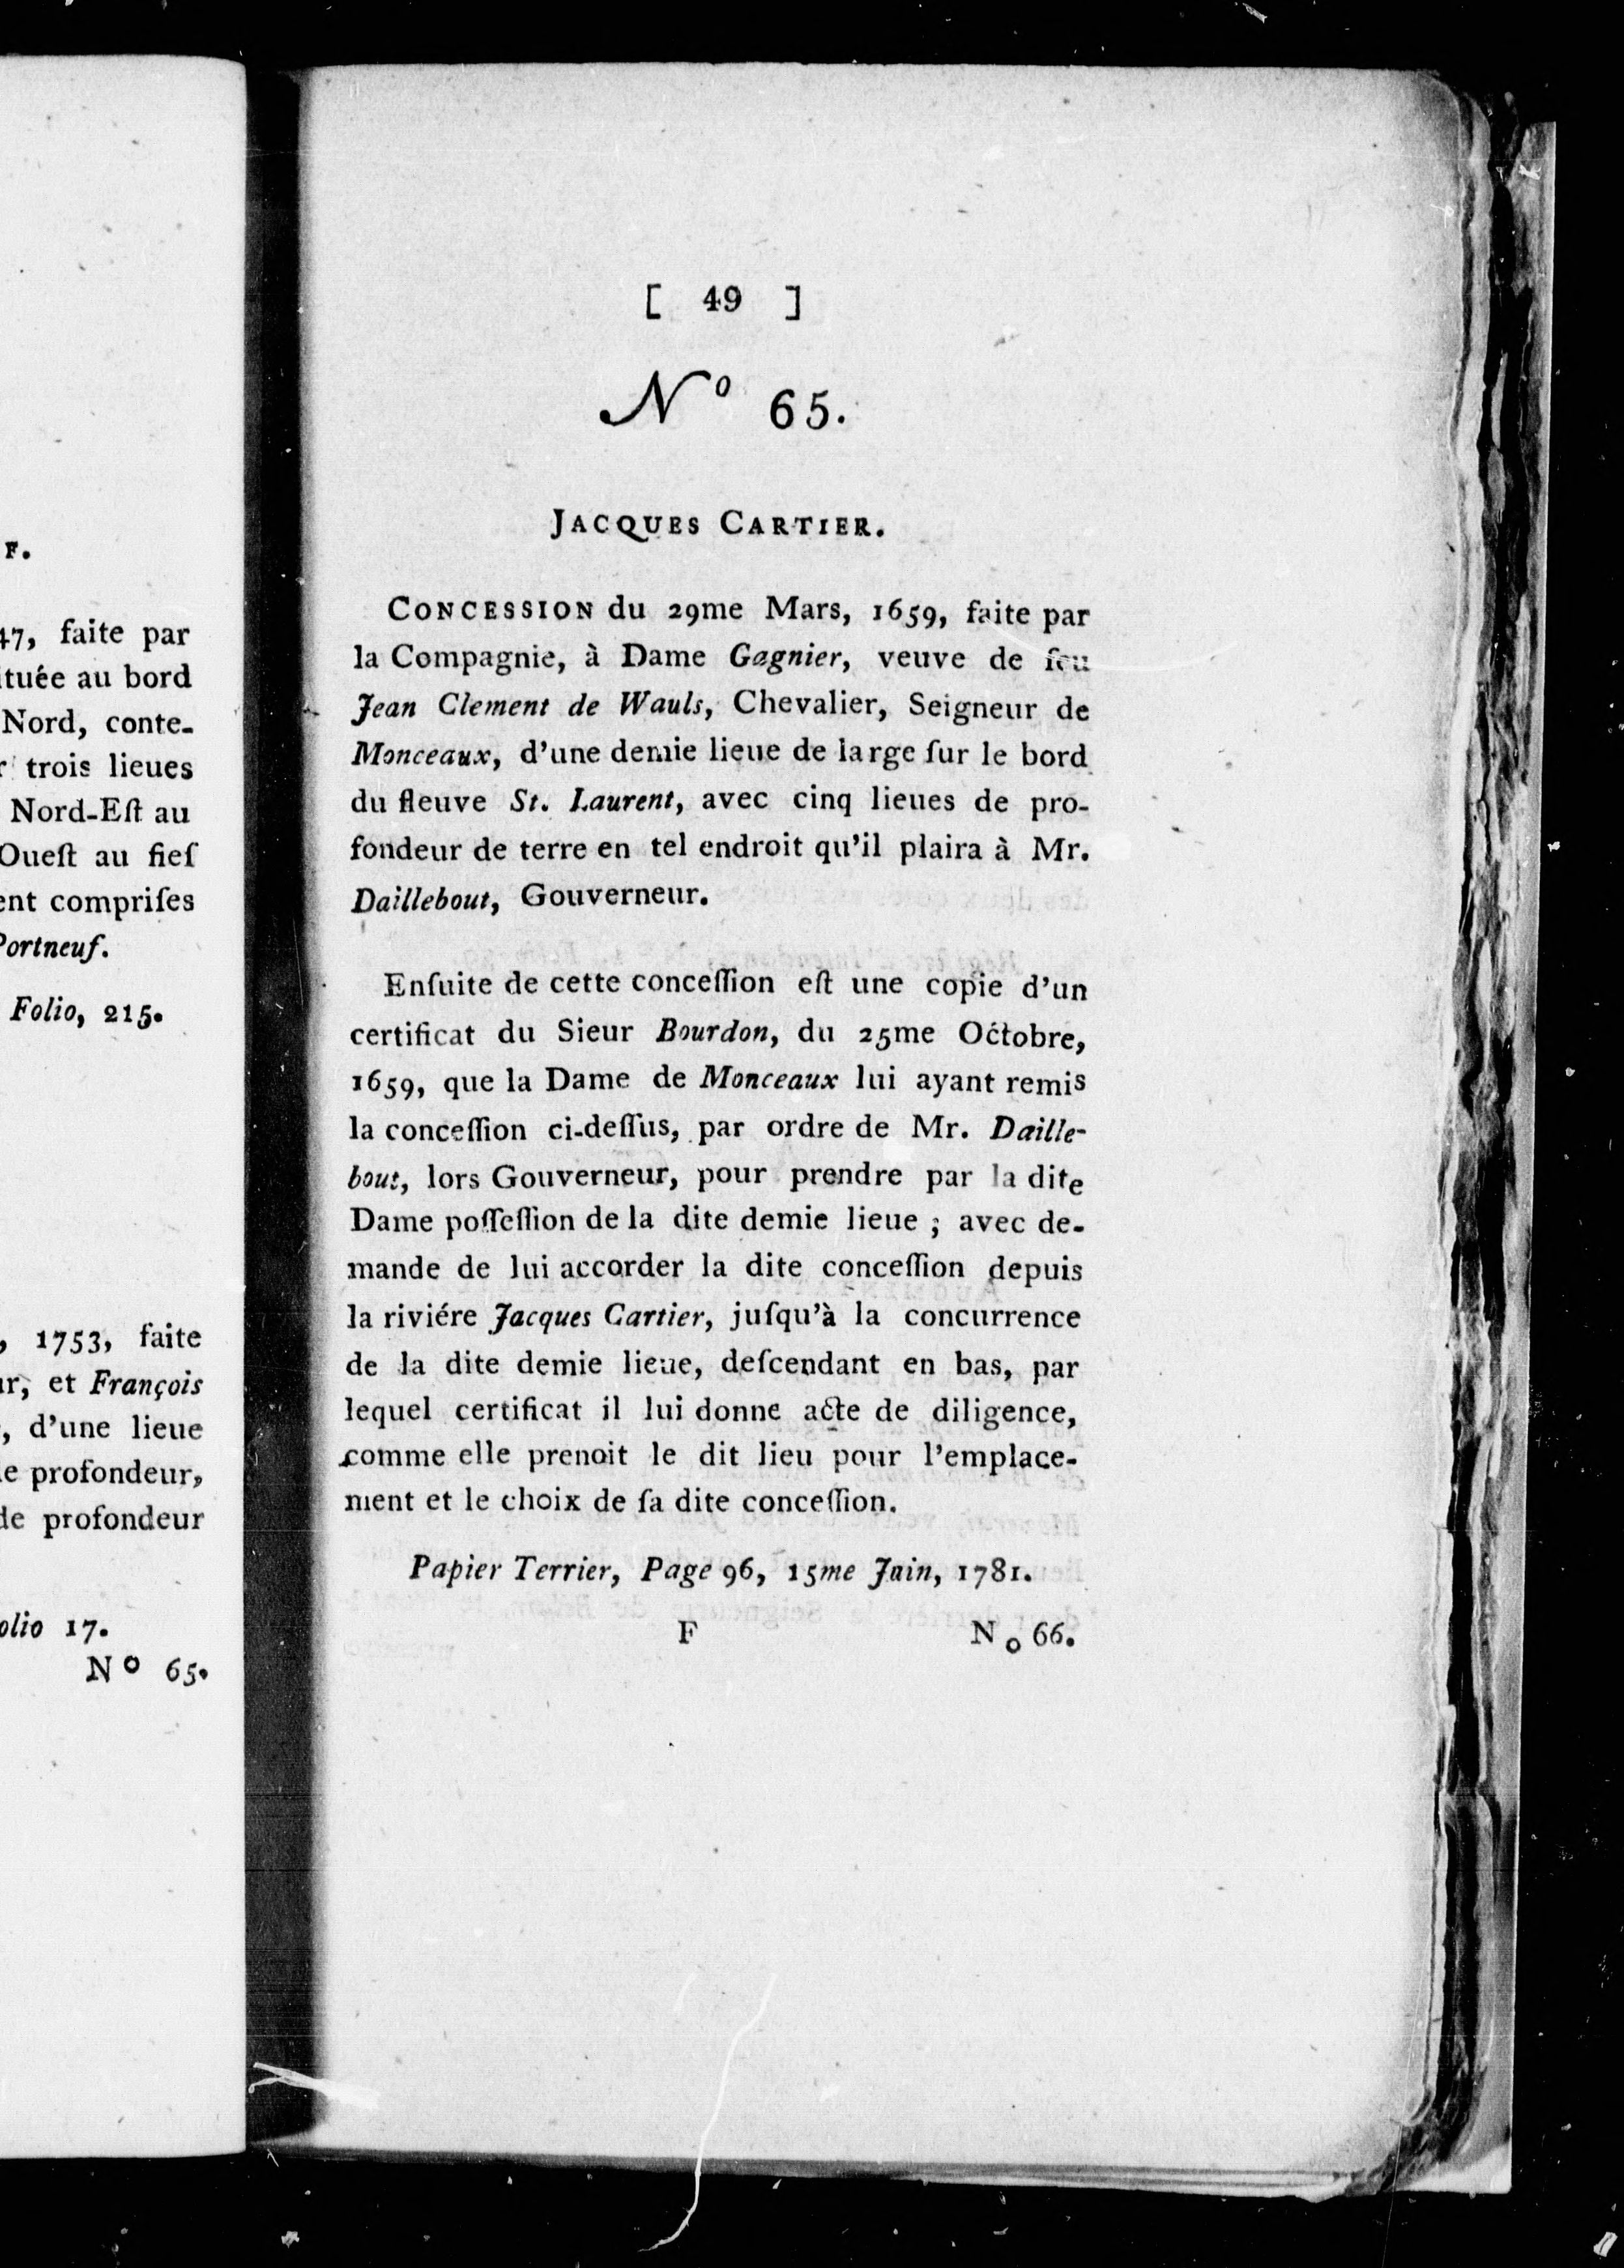 F.
47, faite par
ituée au bord
Nord, conte-
r trois lieues
Nord-Eſt au
Oueſt au fieſ
ent compriſes
Portneuf.
Folio, 215.
, 1753, faite
ur, et François
, d'une lieue
de profondeur,
de profondeur
olio 17.
No 65.
[ 49 ]
No 65.
JACQUES CARTIER.
CONCESSION du 29me Mars, 1659, faite par
la Compagnie, à Dame Gagnier, veuve de feu
Jean Clement de Wauls, Chevalier, Seigneur de
Monceaux, d'une demie lieue de large ſur le bord
du fleuve St. Laurent, avec cinq lieues de pro-
fondeur de terre en tel endroit qu'il plaira à Mr.
Daillebout, Gouverneur.
Enſuite de cette conceſſion eſt une copie d'un
certificat du Sieur Bourdon, du 25me Octobre,
1659, que la Dame de Monceaux lui ayant remis
la conceſſion ci-deſſus, par ordre de Mr. Daille-
bout, lors Gouverneur, pour prendre par la dite
Dame poſſeſſion de la dite demie lieue ; avec de-
mande de lui accorder la dite conceſſion depuis
la riviére Jacques Cartier, juſqu'à la concurrence
de la dite demie lieue, deſcendant en bas, par
lequel certificat il lui donne acte de diligence,
comme elle prenoit le dit lieu pour l'emplace-
ment et le choix de ſa dite conceſſion.
Papier Terrier, Page 96, 15me Juin, 1781.
F No 66.